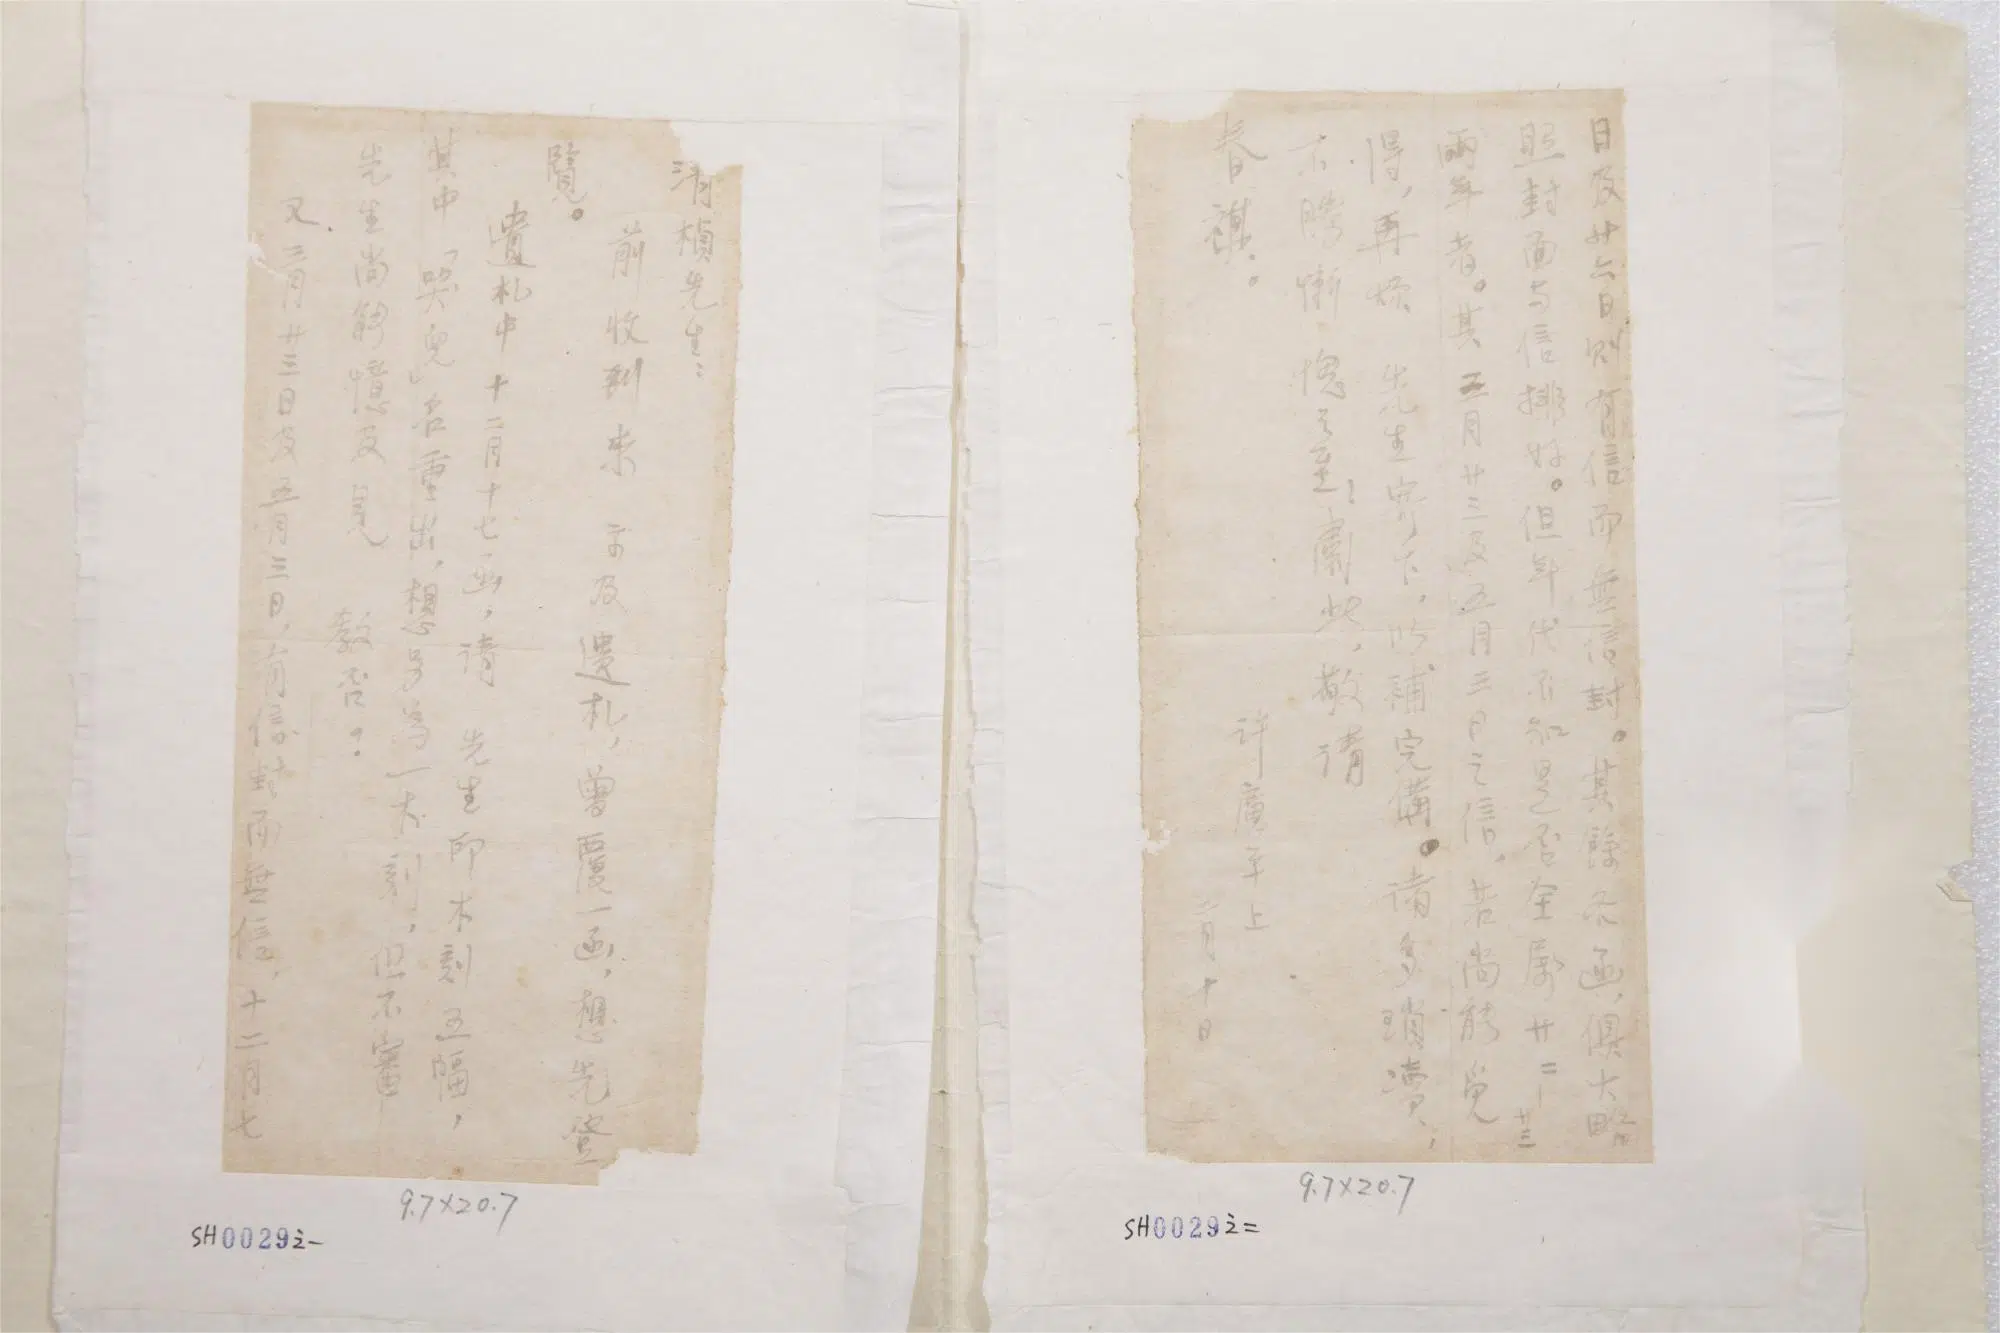 清楨先生：
前收到來 示及遺札，曾覆一函，想先登
覽。
遺札中十二月十七函，請 先生印木刻五幅，
其中「哭兒」名重出，想另為一木刻，但不審
先生尚能憶及見 教否？
又，三月廿三日及五月三日，有信封而無信，十二月七
9.7×20.7
SH0029之一
日及廿六日則有信而無信封。其餘各函，俱大略
照封面与信排好。但年代不知是否全屬廿二—廿三
兩年者。其三月廿三及五月三日之信，若尚能覓
得，再煩 先生寄下，以補完備。諸多瑣瀆，
不勝慚愧之至！肅此，敬請
春祺。
許廣平上
二月十日
9.7×20.7
SH0029之二